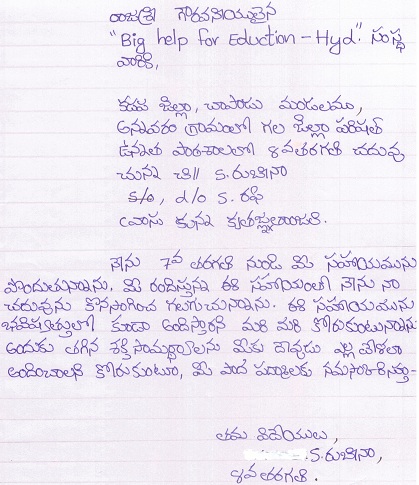 రాజశ్రీ గౌరవనీయులైన
"Big help for Eduction - Hyd". సంస్థ
వారికి,
కడప జిల్లా, చాపాడు మండలము,
అన్నవరం గ్రామంలో గల జిల్లా పరిషత్
ఉన్నత పాఠశాలలో 8వతరగతి చదువు
చున్న చి|| S.రుబీనా
S/o, d/o S. రఫి
వ్రాసు కున్న కృతజ్ఞతాంజలి.
నేను 7వ తరగతి నుండి మీ సహాయమును
పొందుతున్నాను. మీ రందిస్తున్న ఈ సహాయంతో నేను నా
చదువును కొనసాగించ గలుగుచున్నాను. ఈ సహాయమును
భవిష్యత్తులో కూడా అందిస్తారని మరి మరి కోరుకుంటున్నాను
అందుకు తగిన శక్తి సామర్థ్యాలను మీకు దేవుడు ఎల్ల వేళలా
అందించాలని కోరుకుంటూ, మీ పాద పద్మాలకు నమస్కరిస్తూ-
తమ విధేయులు,
S.రుబీనా,
8వ తరగతి.